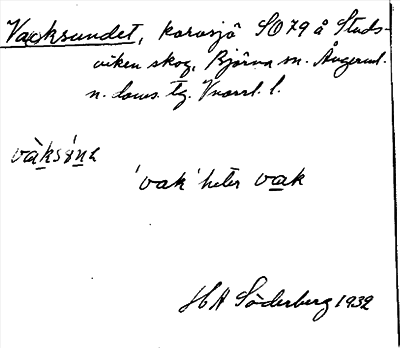 Vaksundet, karosjö SO 79 å Studs-
viken skog, Björna sn. Ångerml.
n. doms. tg. Vnorrl. l.
vàksúnd
'vak' heter vak
HA Söderberg 1932